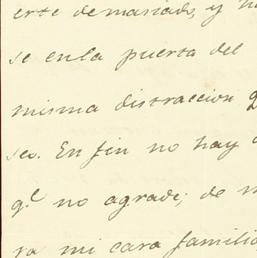 erte demasiado, y n
se en la puerta del
misma distraccion q
seo. En fin no hay
ql no agrade; de m
ra mi cara familia